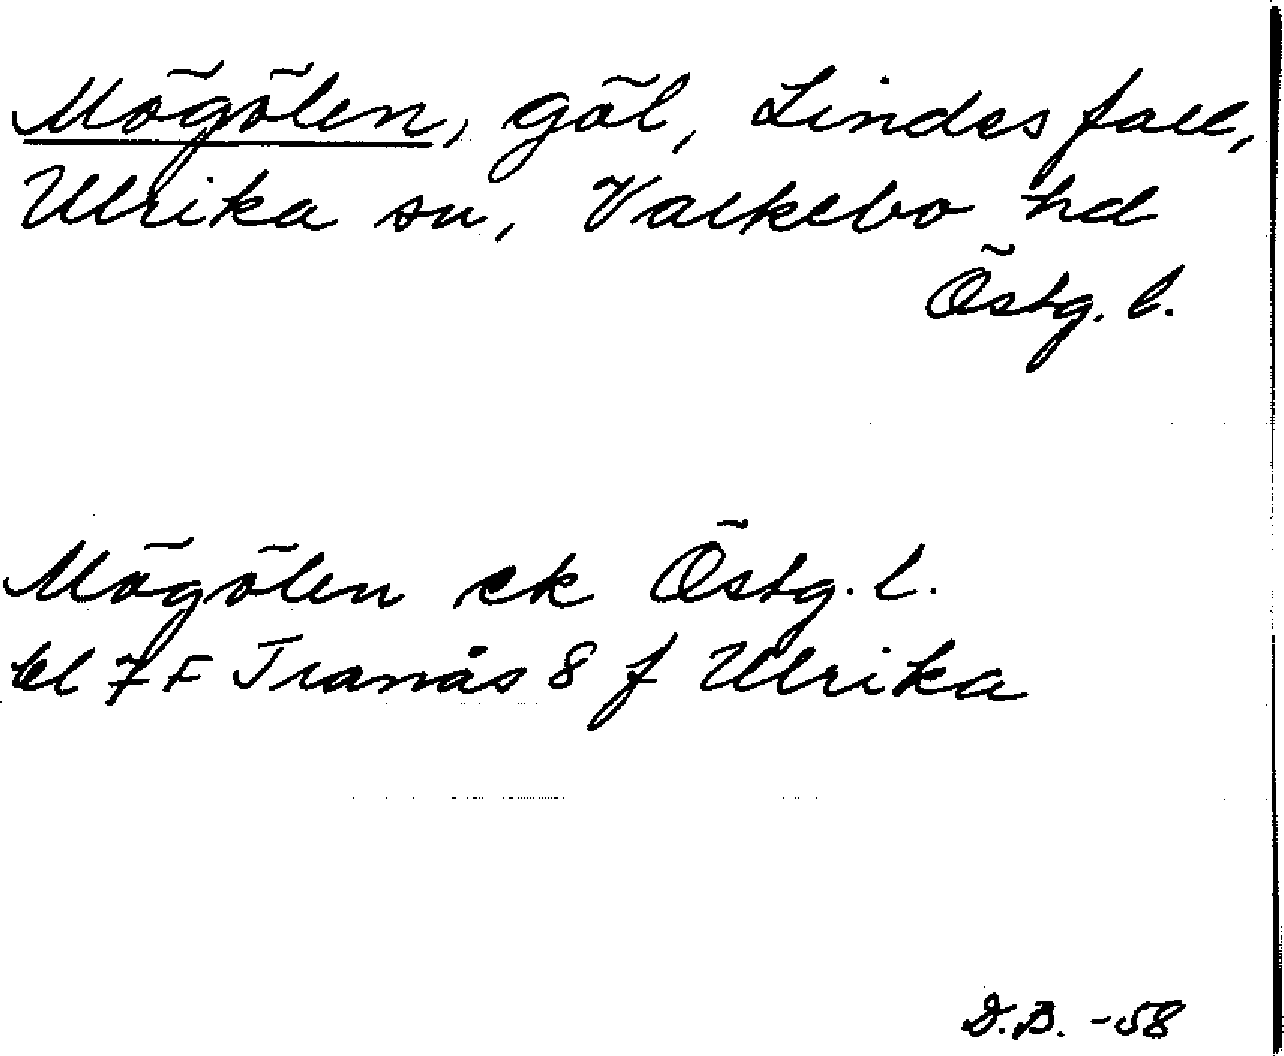 Mögölen, göl, Lindesfall,
Ulrika sn, Valkebo hd
Östg. l.
Mögölen ek Östg. l.
bl 7 F Tranås 8 f Ulrika
D.B. -58